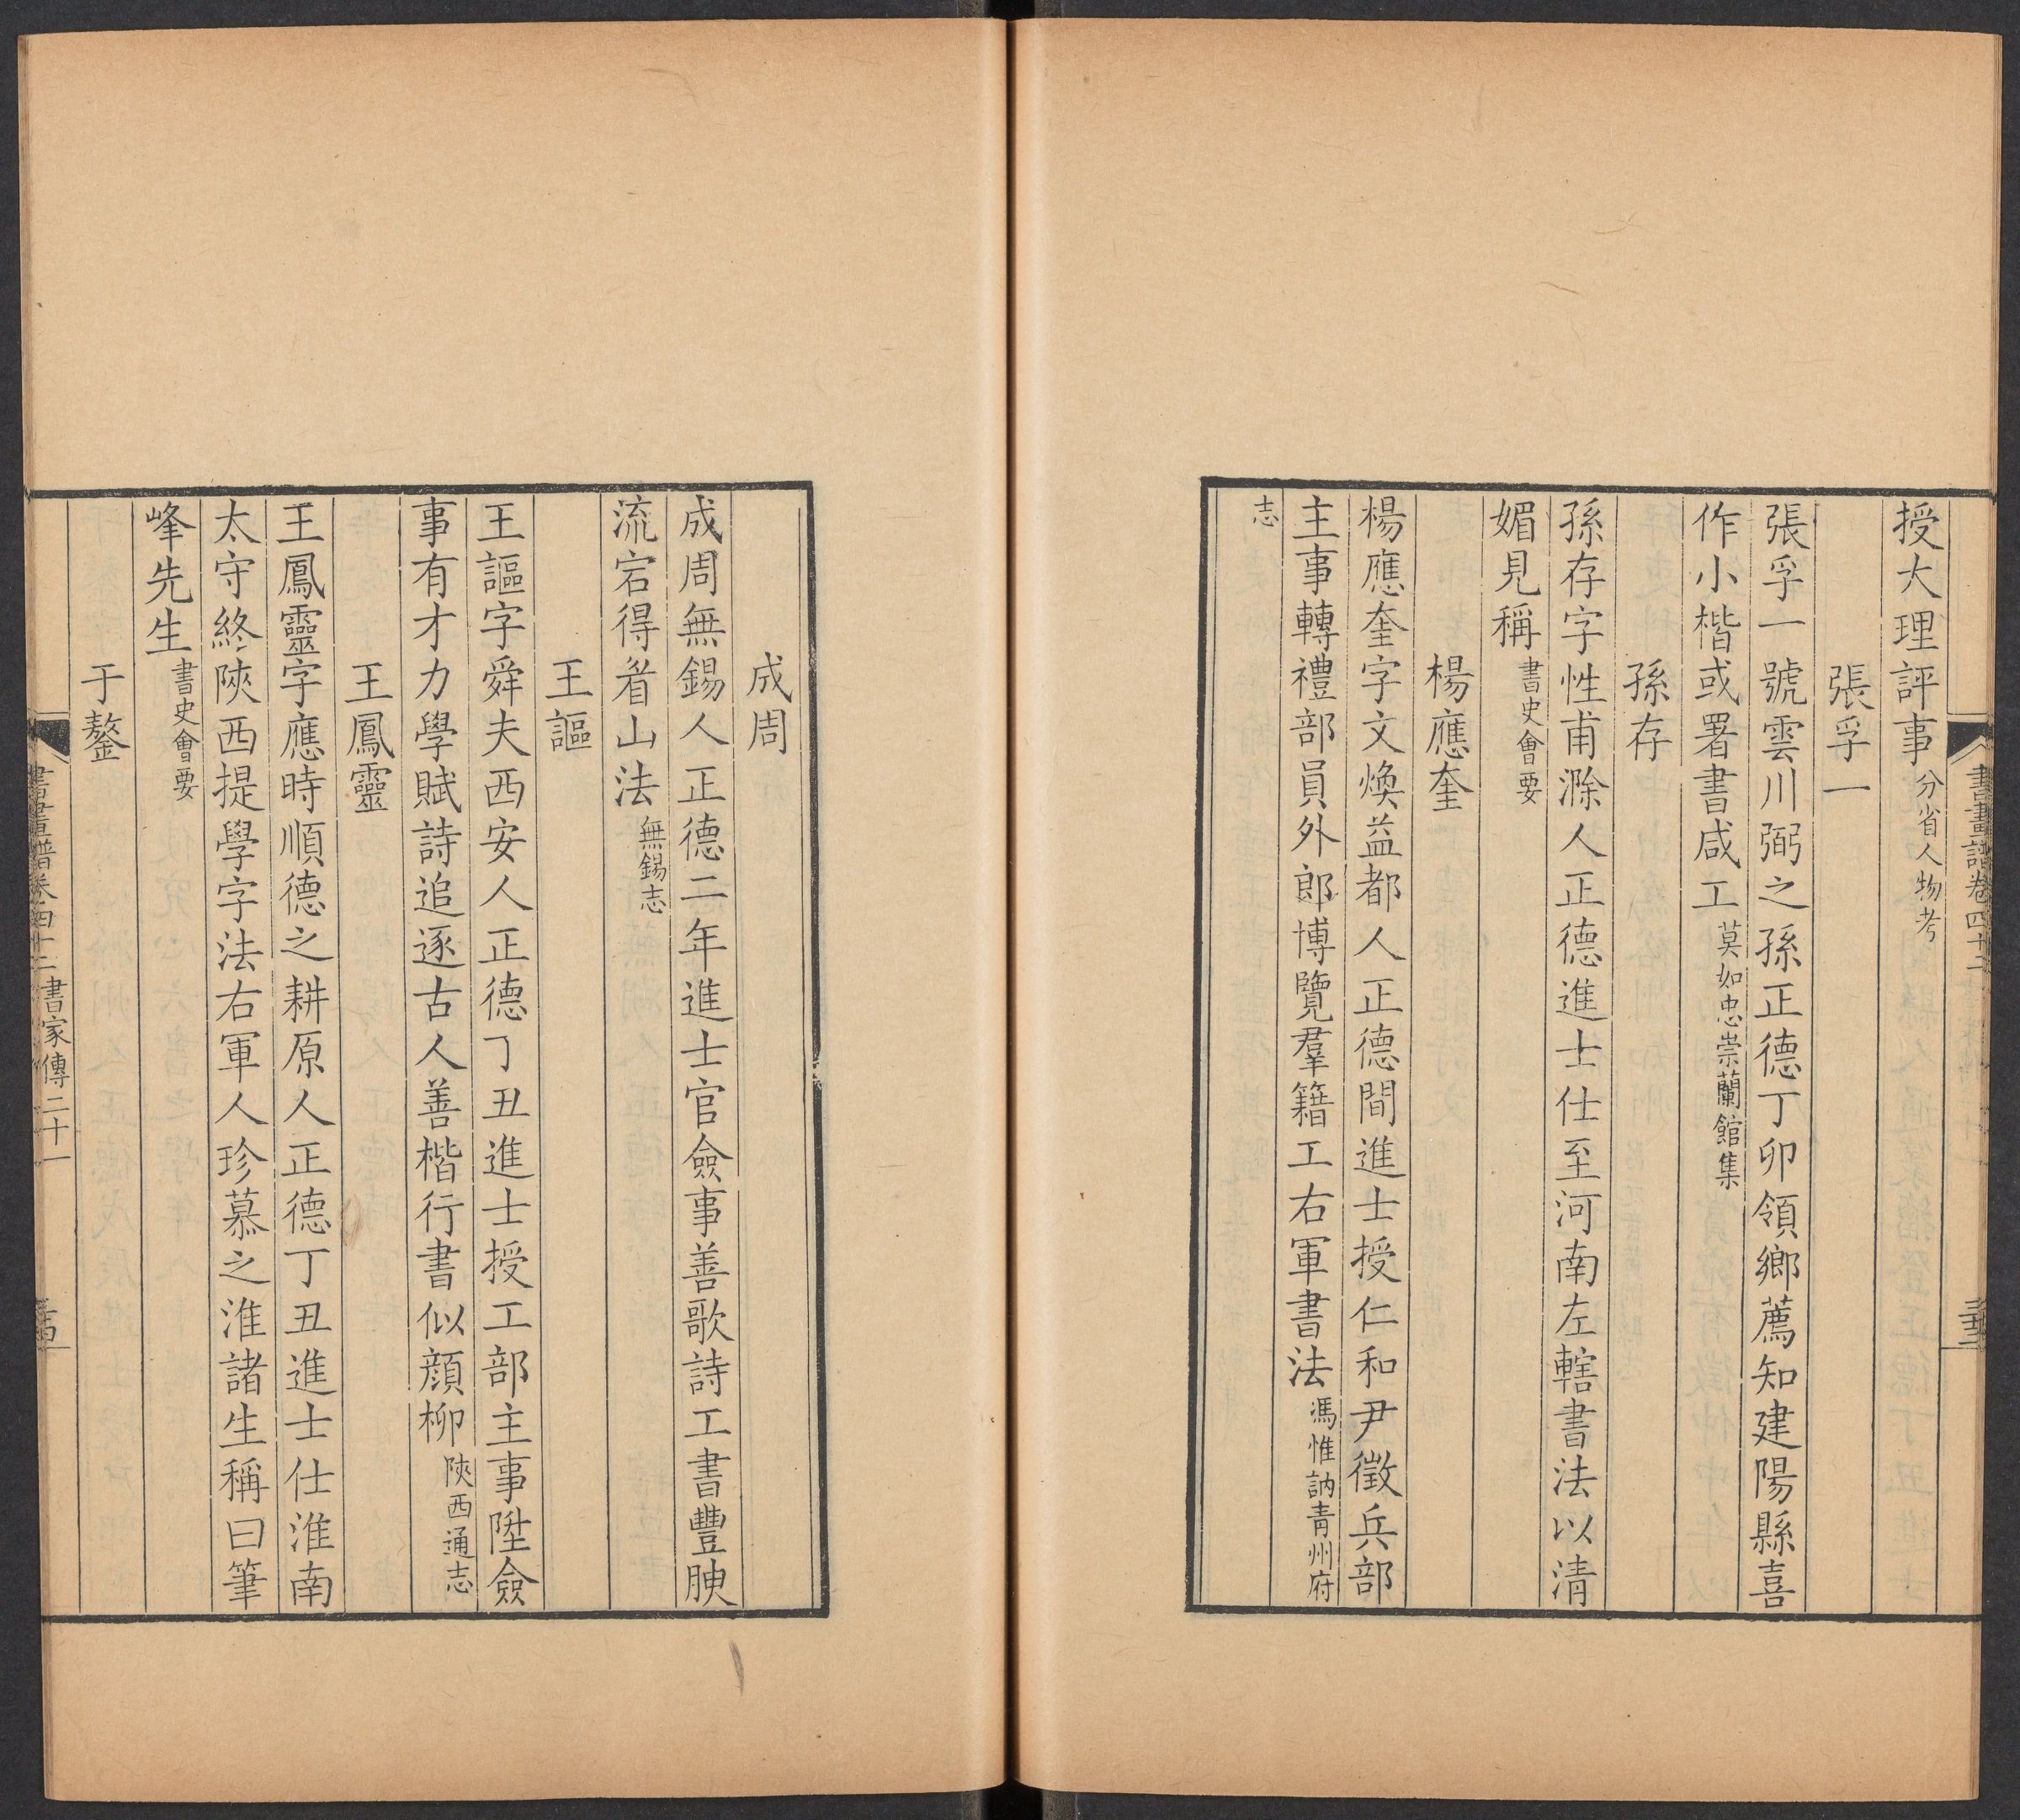 授大理評事分省人物考
張孚一
張孚一號雲川弼之孫正德丁卯領鄉薦知建陽縣喜
作小楷或署書咸工莫如忠崇蘭館集
孫存
孫存字性甫滁人正德進士仕至河南左轄書法以清
媚見稱書史會要
楊應奎
楊應奎字文煥益都人正德間進士授仁和尹徵兵部
主事轉禮部員外郎博覽羣籍工右軍書法馮惟訥青州府
志
書畫譜卷四十二
成周
成周無錫人正德二年進士官僉事善歌詩工書豐腴
流宕得眉山法無錫志
王謳
王謳字舜夫西安人正德丁丑進士授工部主事陞僉
事有才力學賦詩追逐古人善楷行書似顔柳陝西通志
王鳳靈
王鳳靈字應時順德之耕原人正德丁丑進士仕淮南
太守終陝西提學字法右軍人珍慕之淮諸生稱曰筆
峰先生書史會要
于鏊
書畫譜卷四十二 書家傳二十一